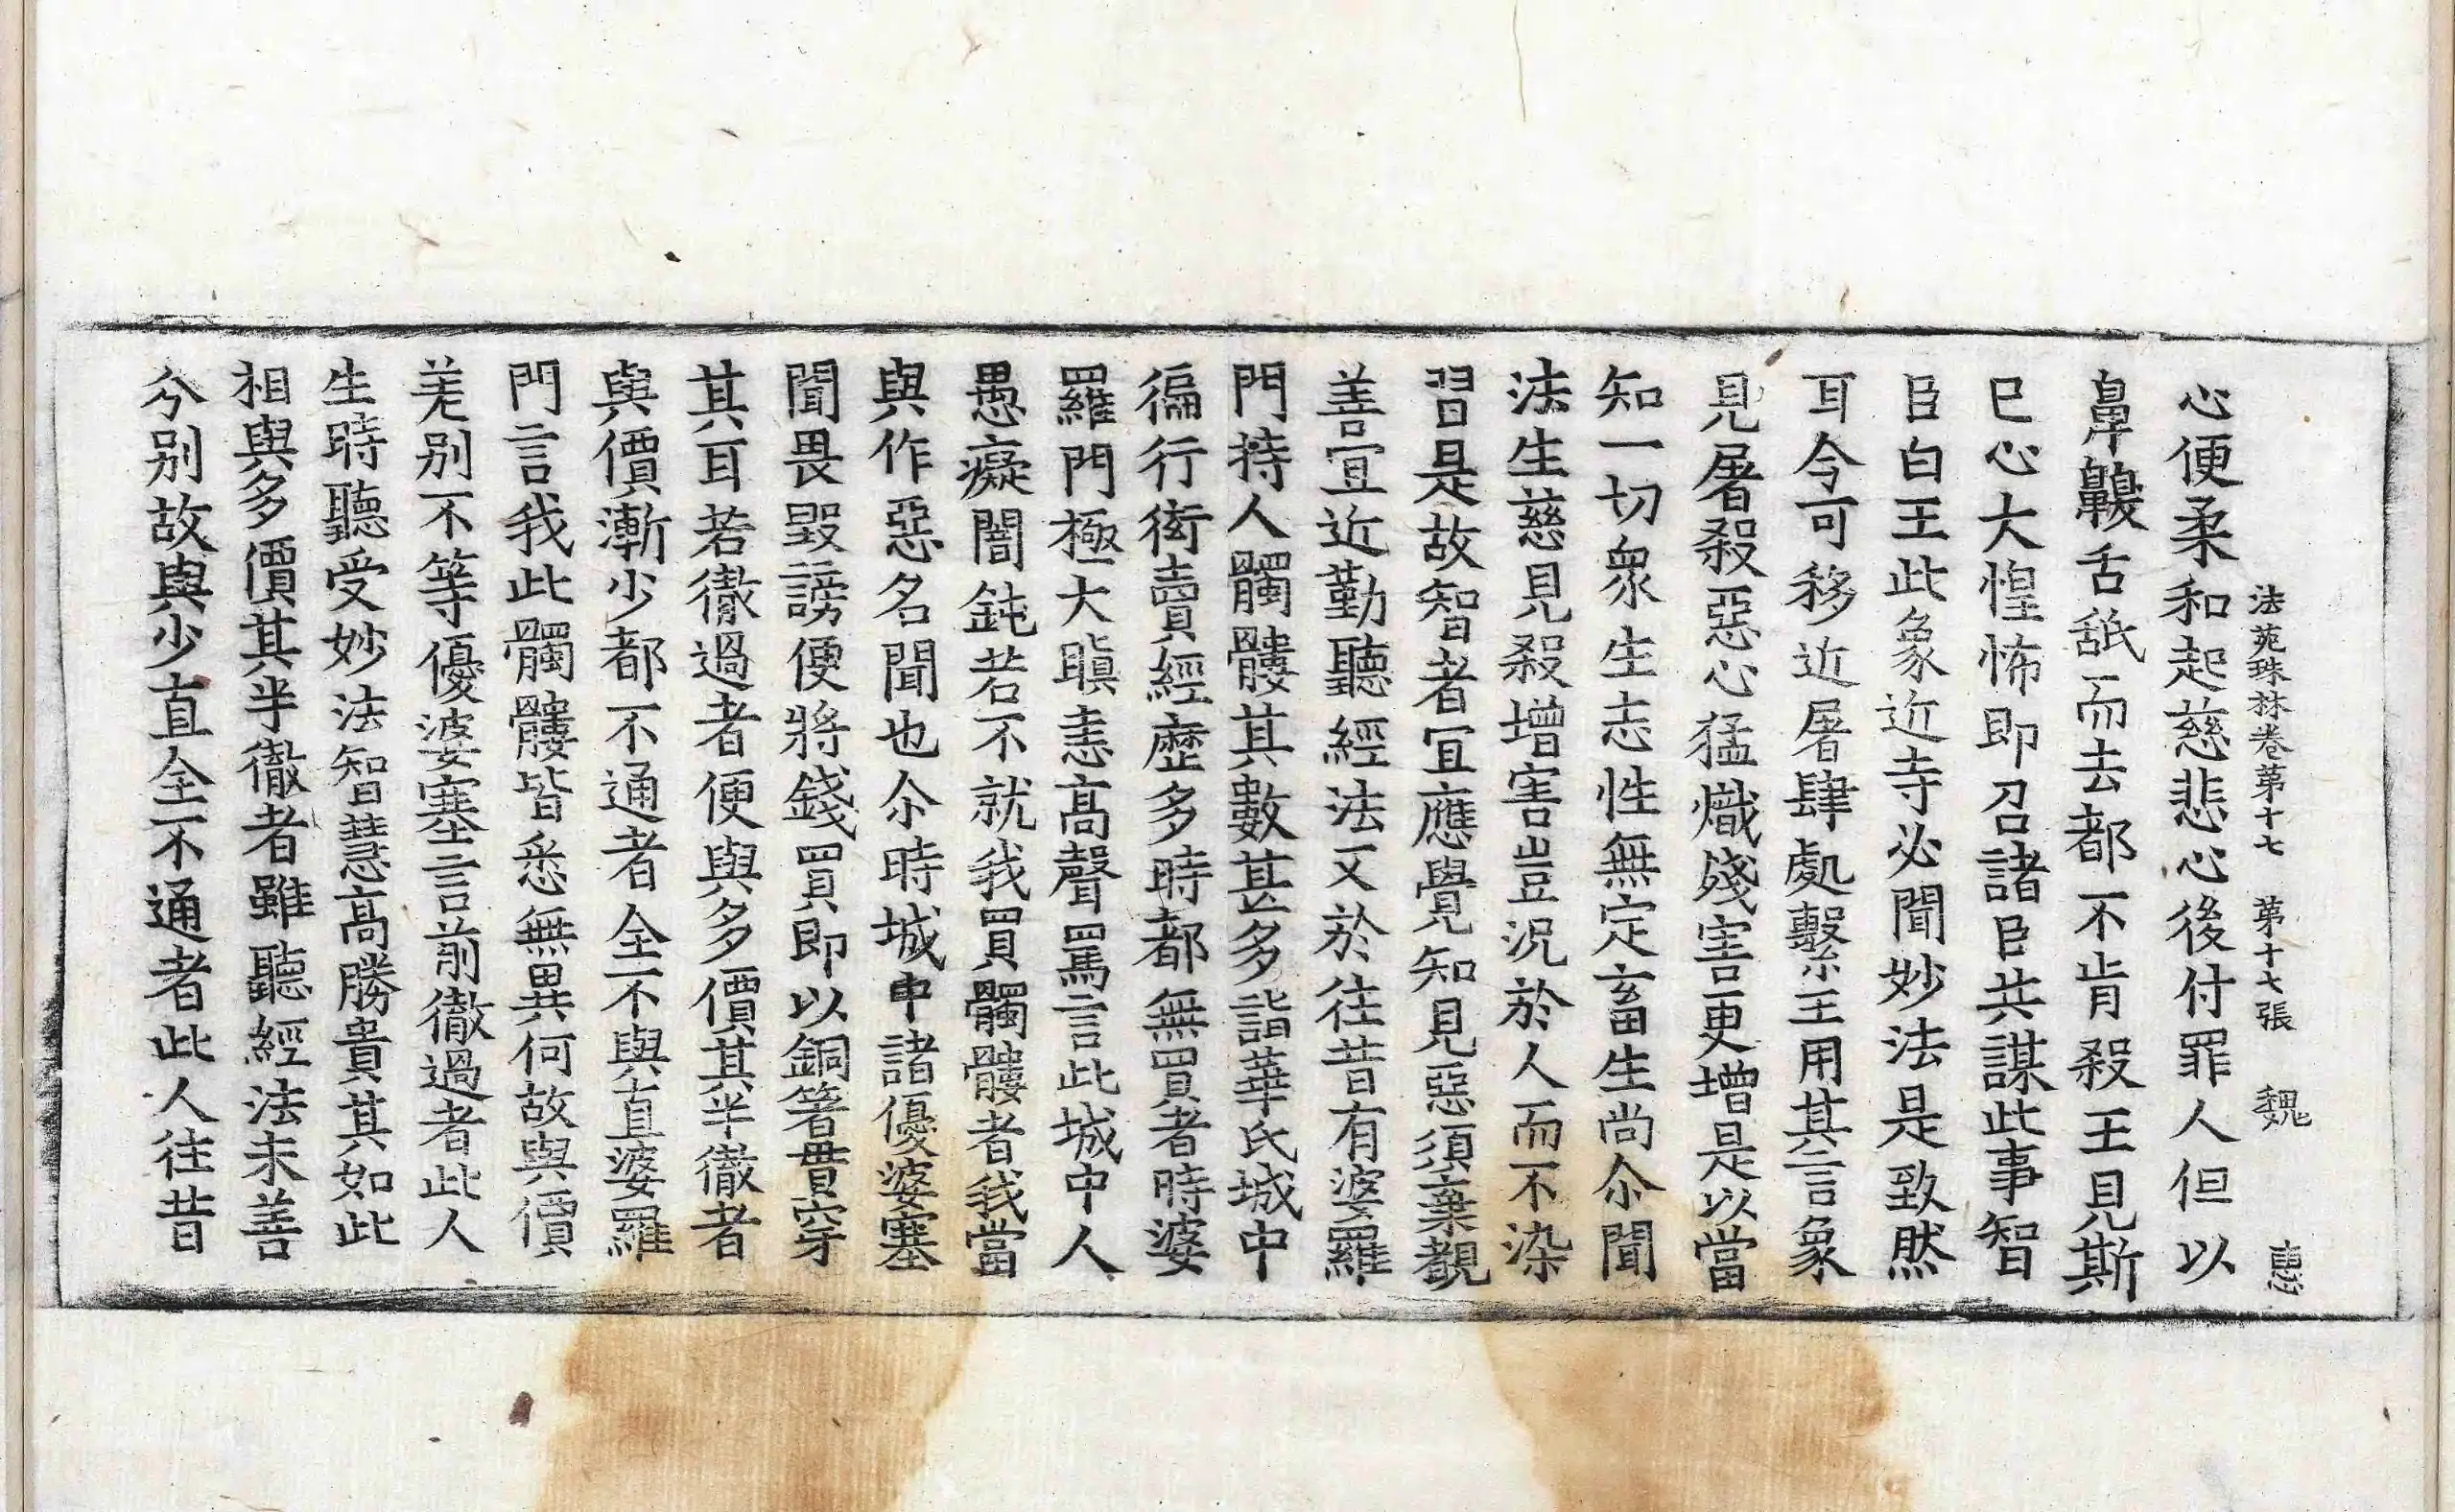 法苑珠林卷第十七 第十七張 魏 惠
心便柔和起慈悲心後付罪人但以
鼻齅舌舐而去都不肯殺王見斯
已心大惶怖即召諸臣共謀此事智
臣白王此象近寺必聞妙法是致然
耳令可移近屠肆處繫王用其言象
見屠殺惡心猛熾殘害更增是以當
知一切衆生志性無定畜生尚尒聞
法生慈見殺增害豈況於人而不染
習是故智者宜應覺知見惡須棄覩
善宜近勤聽經法又於往昔有婆羅
門持人髑髏其數甚多詣華氏城中
徧行衒賣經歷多時都無買者時婆
羅門極大瞋恚高聲罵言此城中人
愚癡闇鈍若不就我買髑髏者我當
與作惡名聞也尒時城中諸優婆塞
聞畏毀謗便將錢買即以銅箸貫穿
其耳若徹過者便與多價其半徹者
與價漸少都不通者全不與直婆羅
門言我此髑髏皆悉無異何故與價
差別不等優婆塞言前徹過者此人
生時聽受妙法智慧高勝貴其如此
相與多價其半徹者雖聽經法未善
分別故與少直全不通者此人往昔